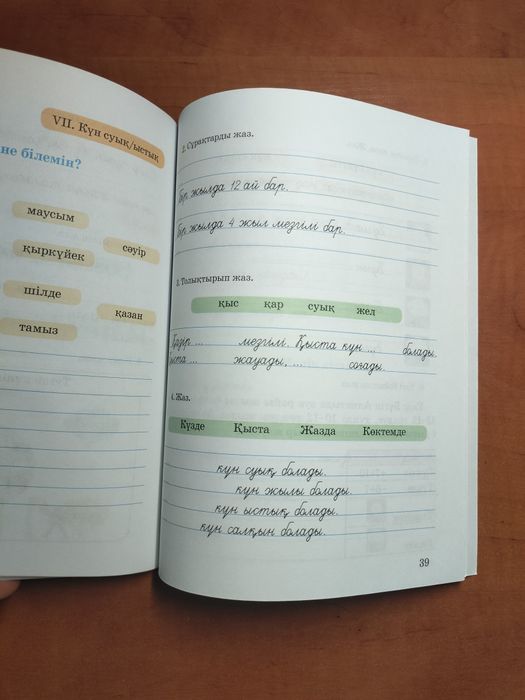 VII. Күн суық/ыстық
не білемін?
маусым
қыркүйек
сәуір
шілде
қазан
тамыз
2. Сұрақтарды жаз.
Бір жылда 12 ай бар.
Бір жылда 4 жыл мезгілі бар.
3. Толықтырып жаз.
қыс қар суық жел
Қазір ... мезгілі. Қыста күн ... болады.
Қыста ... жауады, ... соғады.
4. Жаз.
Күзде Қыста Жазда Көктемде
күн суық болады.
күн жылы болады.
күн ыстық болады.
күн салқын болады.
39